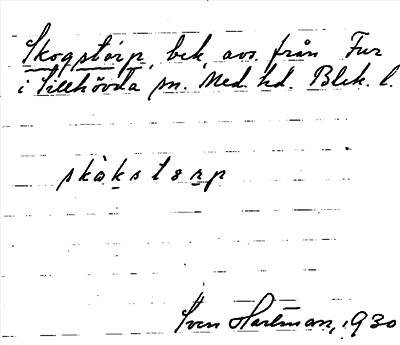 Skogstorp, bek. avs. från Fur
i Sillhövda sn. Med. hd. Blek. l.
skàkstərp
Sven Hartman, 1930